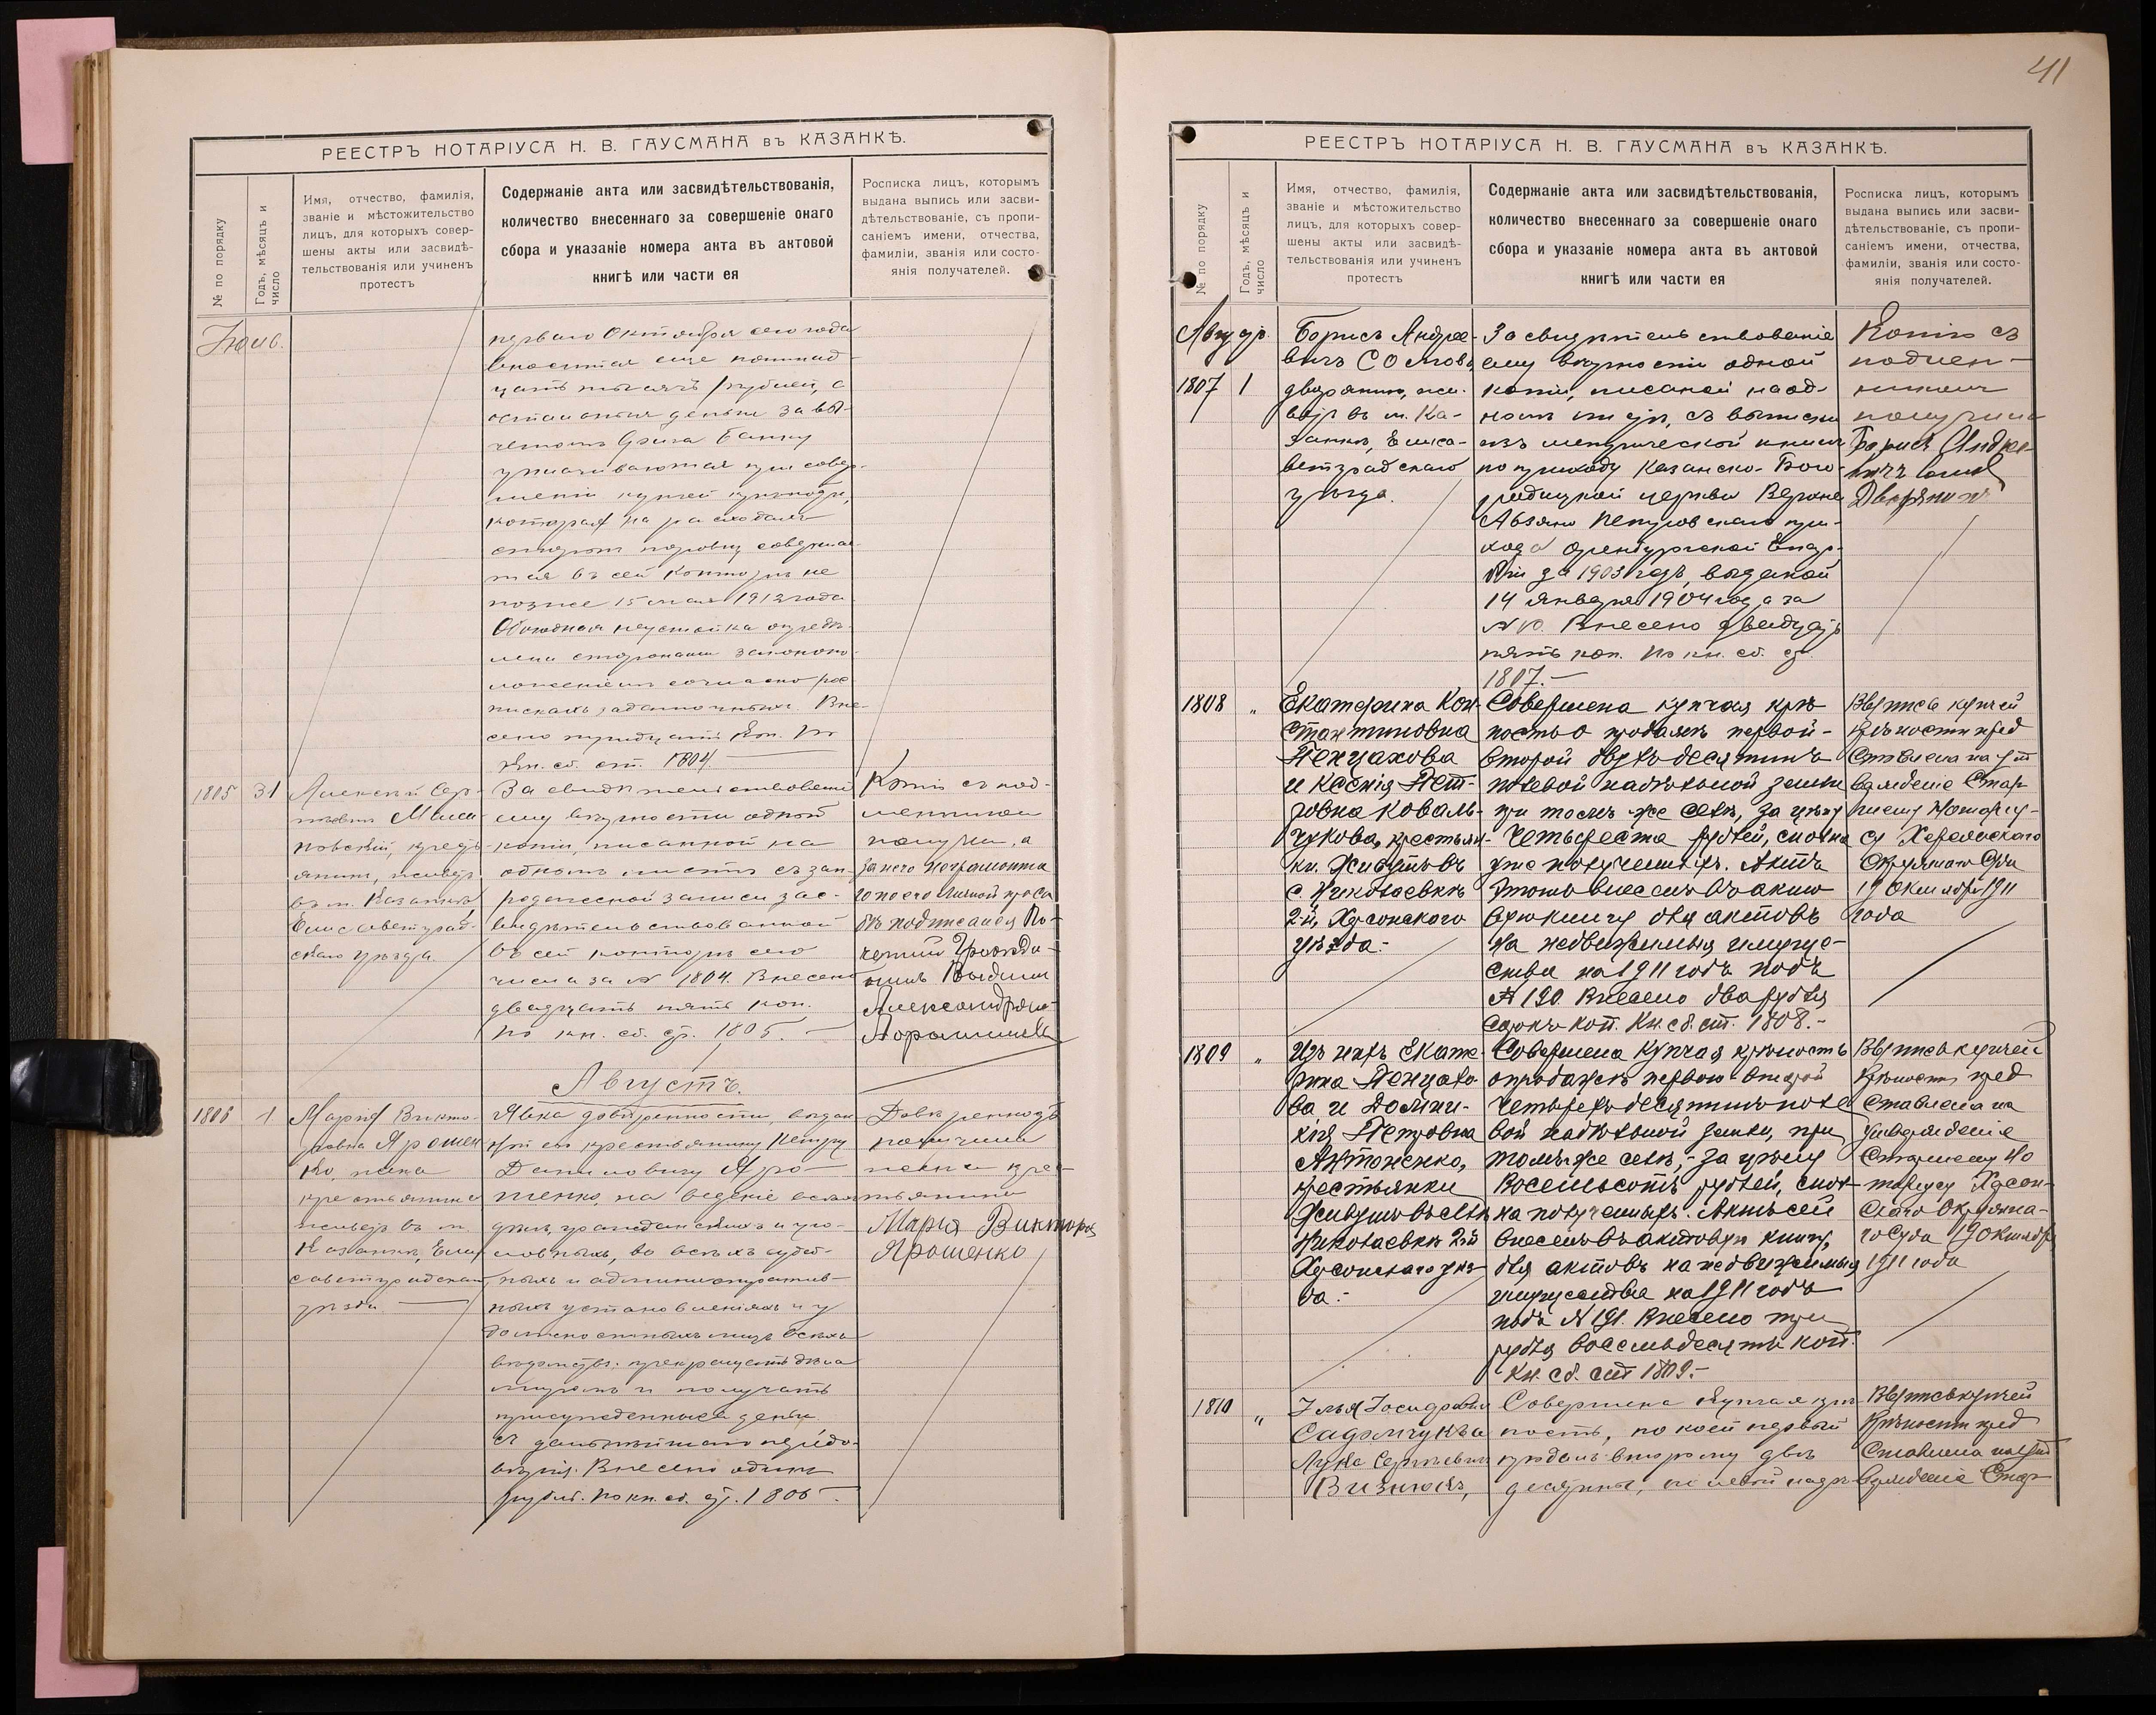 РЕЕСТРЪ НОТАРІУСА Н. В. ГАУСМАНА въ КАЗАНКѢ.
№ по порядку
Годъ, мѣсяцъ и число
Имя, отчество, фамилія,
званіе и мѣстожительство
лицъ, для которыхъ совер-
шены акты или засвидѣ-
тельствованія или учиненъ
протестъ
Содержаніе акта или засвидѣтельствованія,
количество внесеннаго за совершеніе онаго
сбора и указаніе номера акта въ актовой
книгѣ или части ея
Росписка лицъ, которымъ
выдана выпись или засви-
дѣтельствованіе, съ пропи-
саніемъ имени, отчества,
фамиліи, званія или состо-
янія получателей.
перваго Октября сего года
вносится еще пятнад-
цать тысячъ рублей, а
остальныя деньги за вы-
четомъ долга Банку
уплачиваются при совер-
шеніи купчей крѣпости,
которая на расходахъ
сторонъ поровну совершает-
тся въ сей конторѣ не
позже 15 мая 1912 года
Обоюдная неустойка опредѣ-
лена сторонами законопо-
ложеніемъ согласно рос-
пискахъ задаточныхъ. Вне-
сено тридцать коп. По
кн. сб. ст. 1804.
1805
31
Алексѣй Сер-
овскій,
живетъ
въ м. Казанкѣ
Елисаветград-
скаго уѣзда.
Засвидѣтельствованіе
ему вѣрности одной
копіи, писанной на
одномъ листѣ съ
засви-
дѣтельствованной
въ сей конторѣ сего
числа за № 1804. Внесено
двадцать пять коп.
По кн. сб. ст. 1805.
Копію съ под-
линникомъ
получилъ, а
за него неграмотна-
го по его личной прось-
бѣ подписался По-
четный Гражда-
нинъ
Августъ.
1806
1
Марія Викто-
ровна Ярошен-
ко, жена
крестьянина
живетъ въ м.
Казанкѣ, Ели-
саветградскаго
уѣзда.
Явка довѣренности, выдан-
ной ей крестьянину Петру
Даниловичу Яро-
шенко, на веденіе всѣхъ
дѣлъ, гражданскихъ и уго-
ловныхъ, во всѣхъ судеб-
ныхъ и административ-
ныхъ установленіяхъ и у
должностныхъ лицъ всѣхъ
вѣдомствъ: прекращать дѣла
миромъ и получать
присужденныя деньги
съ дальнѣйшаго передо-
вѣрія. Внесено одинъ
рубль. По кн. сб. ст. 1806.
Довѣренность
получила
жена крес-
тьянина
Марія Викторов
Ярошенко
41
РЕЕСТРЪ НОТАРІУСА Н. В. ГАУСМАНА въ КАЗАНКѢ.
№ по порядку
Годъ, мѣсяцъ и число
Имя, отчество, фамилія,
званіе и мѣстожительство
лицъ, для которыхъ совер-
шены акты или засвидѣ-
тельствованія или учиненъ
протестъ
Содержаніе акта или засвидѣтельствованія,
количество внесеннаго за совершеніе онаго
сбора и указаніе номера акта въ актовой
книгѣ или части ея
Росписка лицъ, которымъ
выдана выпись или засви-
дѣтельствованіе, съ пропи-
саніемъ имени, отчества,
фамиліи, званія или состо-
янія получателей.
1807
1
Борисъ Андрее-
вичъ Сомовъ,
дворянинъ, жи-
ветъ въ м. Ка-
занкѣ, Елиса-
ветградскаго
уѣзда.
Засвидѣтельствованіе
ему вѣрности одной
копіи, писаной на од-
номъ листѣ, съ выписки
изъ метрической книги
по приходу Казанско-Бого-
родицкой церкви Верхне
Авзяно Петровскаго при-
хода Оренбургской Епар-
хіи за 1903 годъ, выданой
14 Января 1904 года за
№ 10. Внесено двадцать
пять коп. По кн. сб. ст.
1807.-
Копію съ
подлин-
никомъ
получилъ
Борисъ Андре-
евичъ
Дворянинъ
1808
"
Екатерина Кон-
стантиновна
Пенцахова
и Ксенія Пет-
ровна Коваль-
чукова, крестьян-
ки. Живутъ въ
с. Николаевкѣ
2-й, Херсонскаго
уѣзда.-
Совершена купчая крѣ-
пость о продажѣ первой-
второй двухъ десятинъ
полевой надѣльной земли
при томъ же селѣ, за цѣну
Четыреста рублей, сполна
уже полученныхъ. Актъ
этотъ внесенъ въ акто-
вую книгу для актовъ
на недвижимыя имуще-
ства на 1911 годъ подъ
№ 190. Внесено два рубля
сорокъ коп. Кн. сб. ст. 1808.-
Выпись купчей
крѣпости пред-
ставлена на ут-
вержденіе Стар-
шему Нотаріу-
су Херсонскаго
Окружнаго Суда
19 Октября 1911
года
1809
"
Изъ нихъ Екате-
рина Пенцахо-
ва и Домни-
кія Петровна
Антоненко,
крестьянки
Живутъ въ селѣ
Николаевкѣ 2-й
Херсонскаго уѣз-
да.-
Совершена купчая крѣпость
о продажѣ первою-второй
четырехъ десятинъ поле-
вой надѣльной земли, при
томъ же селѣ,- за цѣну
Восемьсотъ рублей, спол-
на полученныхъ. Актъ сей
внесенъ въ актовую книгу,
для актовъ на недвижимыя
имущества на 1911 годъ
подъ № 191. Внесено три
рубля восемьдесятъ коп.
Кн. сб. ст. 1809.-
Выпись купчей
крѣпости пред-
ставлена на
утвержденіе
Старшему Но-
таріусу Херсон-
скаго Окружна-
го Суда 19 Октября
1911 года
1810
"
Визнюкъ,
Совершена купчая крѣ-
пость, по коей первый
продалъ второму двѣ
десятины, полевой надѣ-
Выпись купчей
крѣпости пред-
ставлена на ут-
вержденіе Стар-